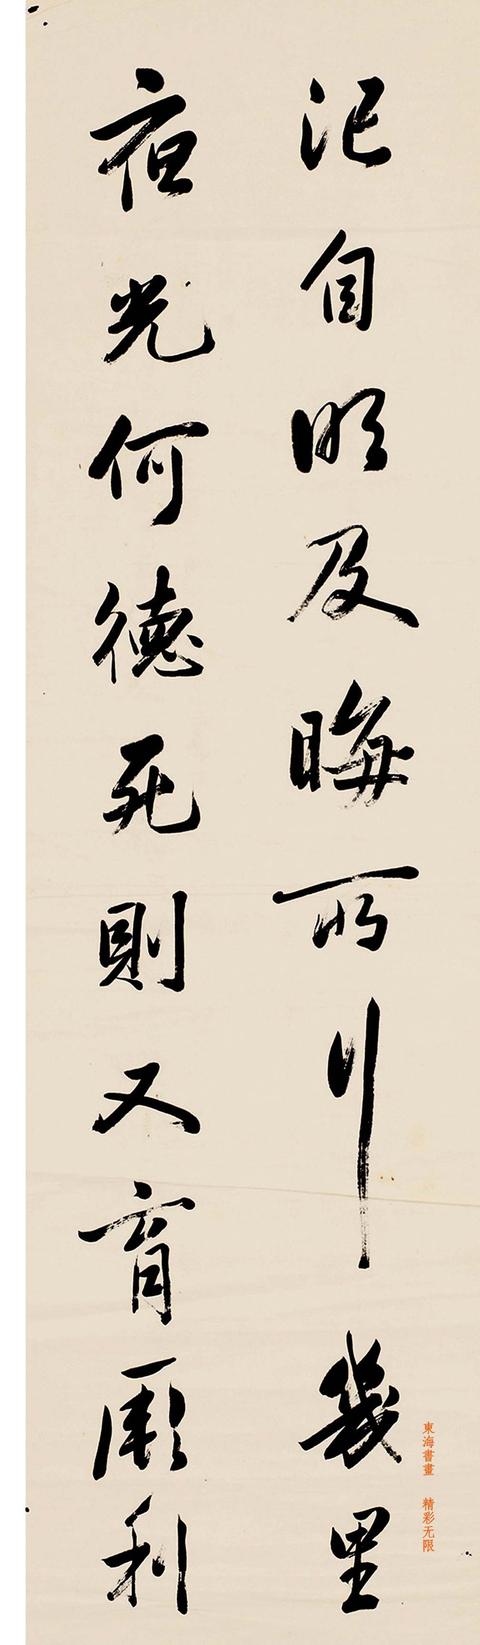 汜自明及晦所行幾里
夜光何德死則又育厥利
東海書畫 精彩无限